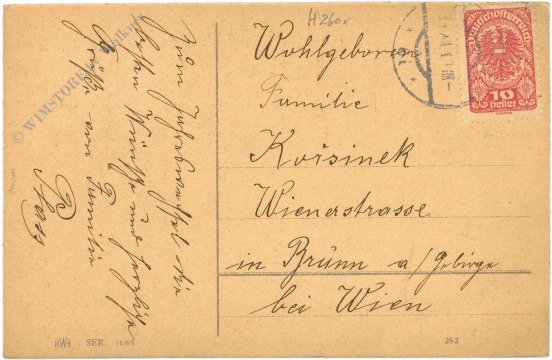 Zum Jahreswechsel die
besten Wünsche und herzliche
Grüße von Familie
H 260x
Wohlgeboren
Familie
Kořsinek
Wienerstrasse
in Brünn a/Gebirge
bei Wien
Deutschösterreich
10
Heller
© WIMSTORE
SER.
292